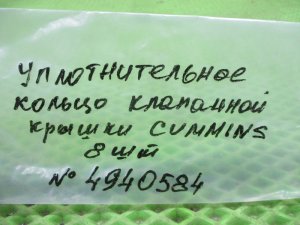 Уплотнительное
кольцо клапанной
крышки CUMMINS
8 шт
№ 4940584